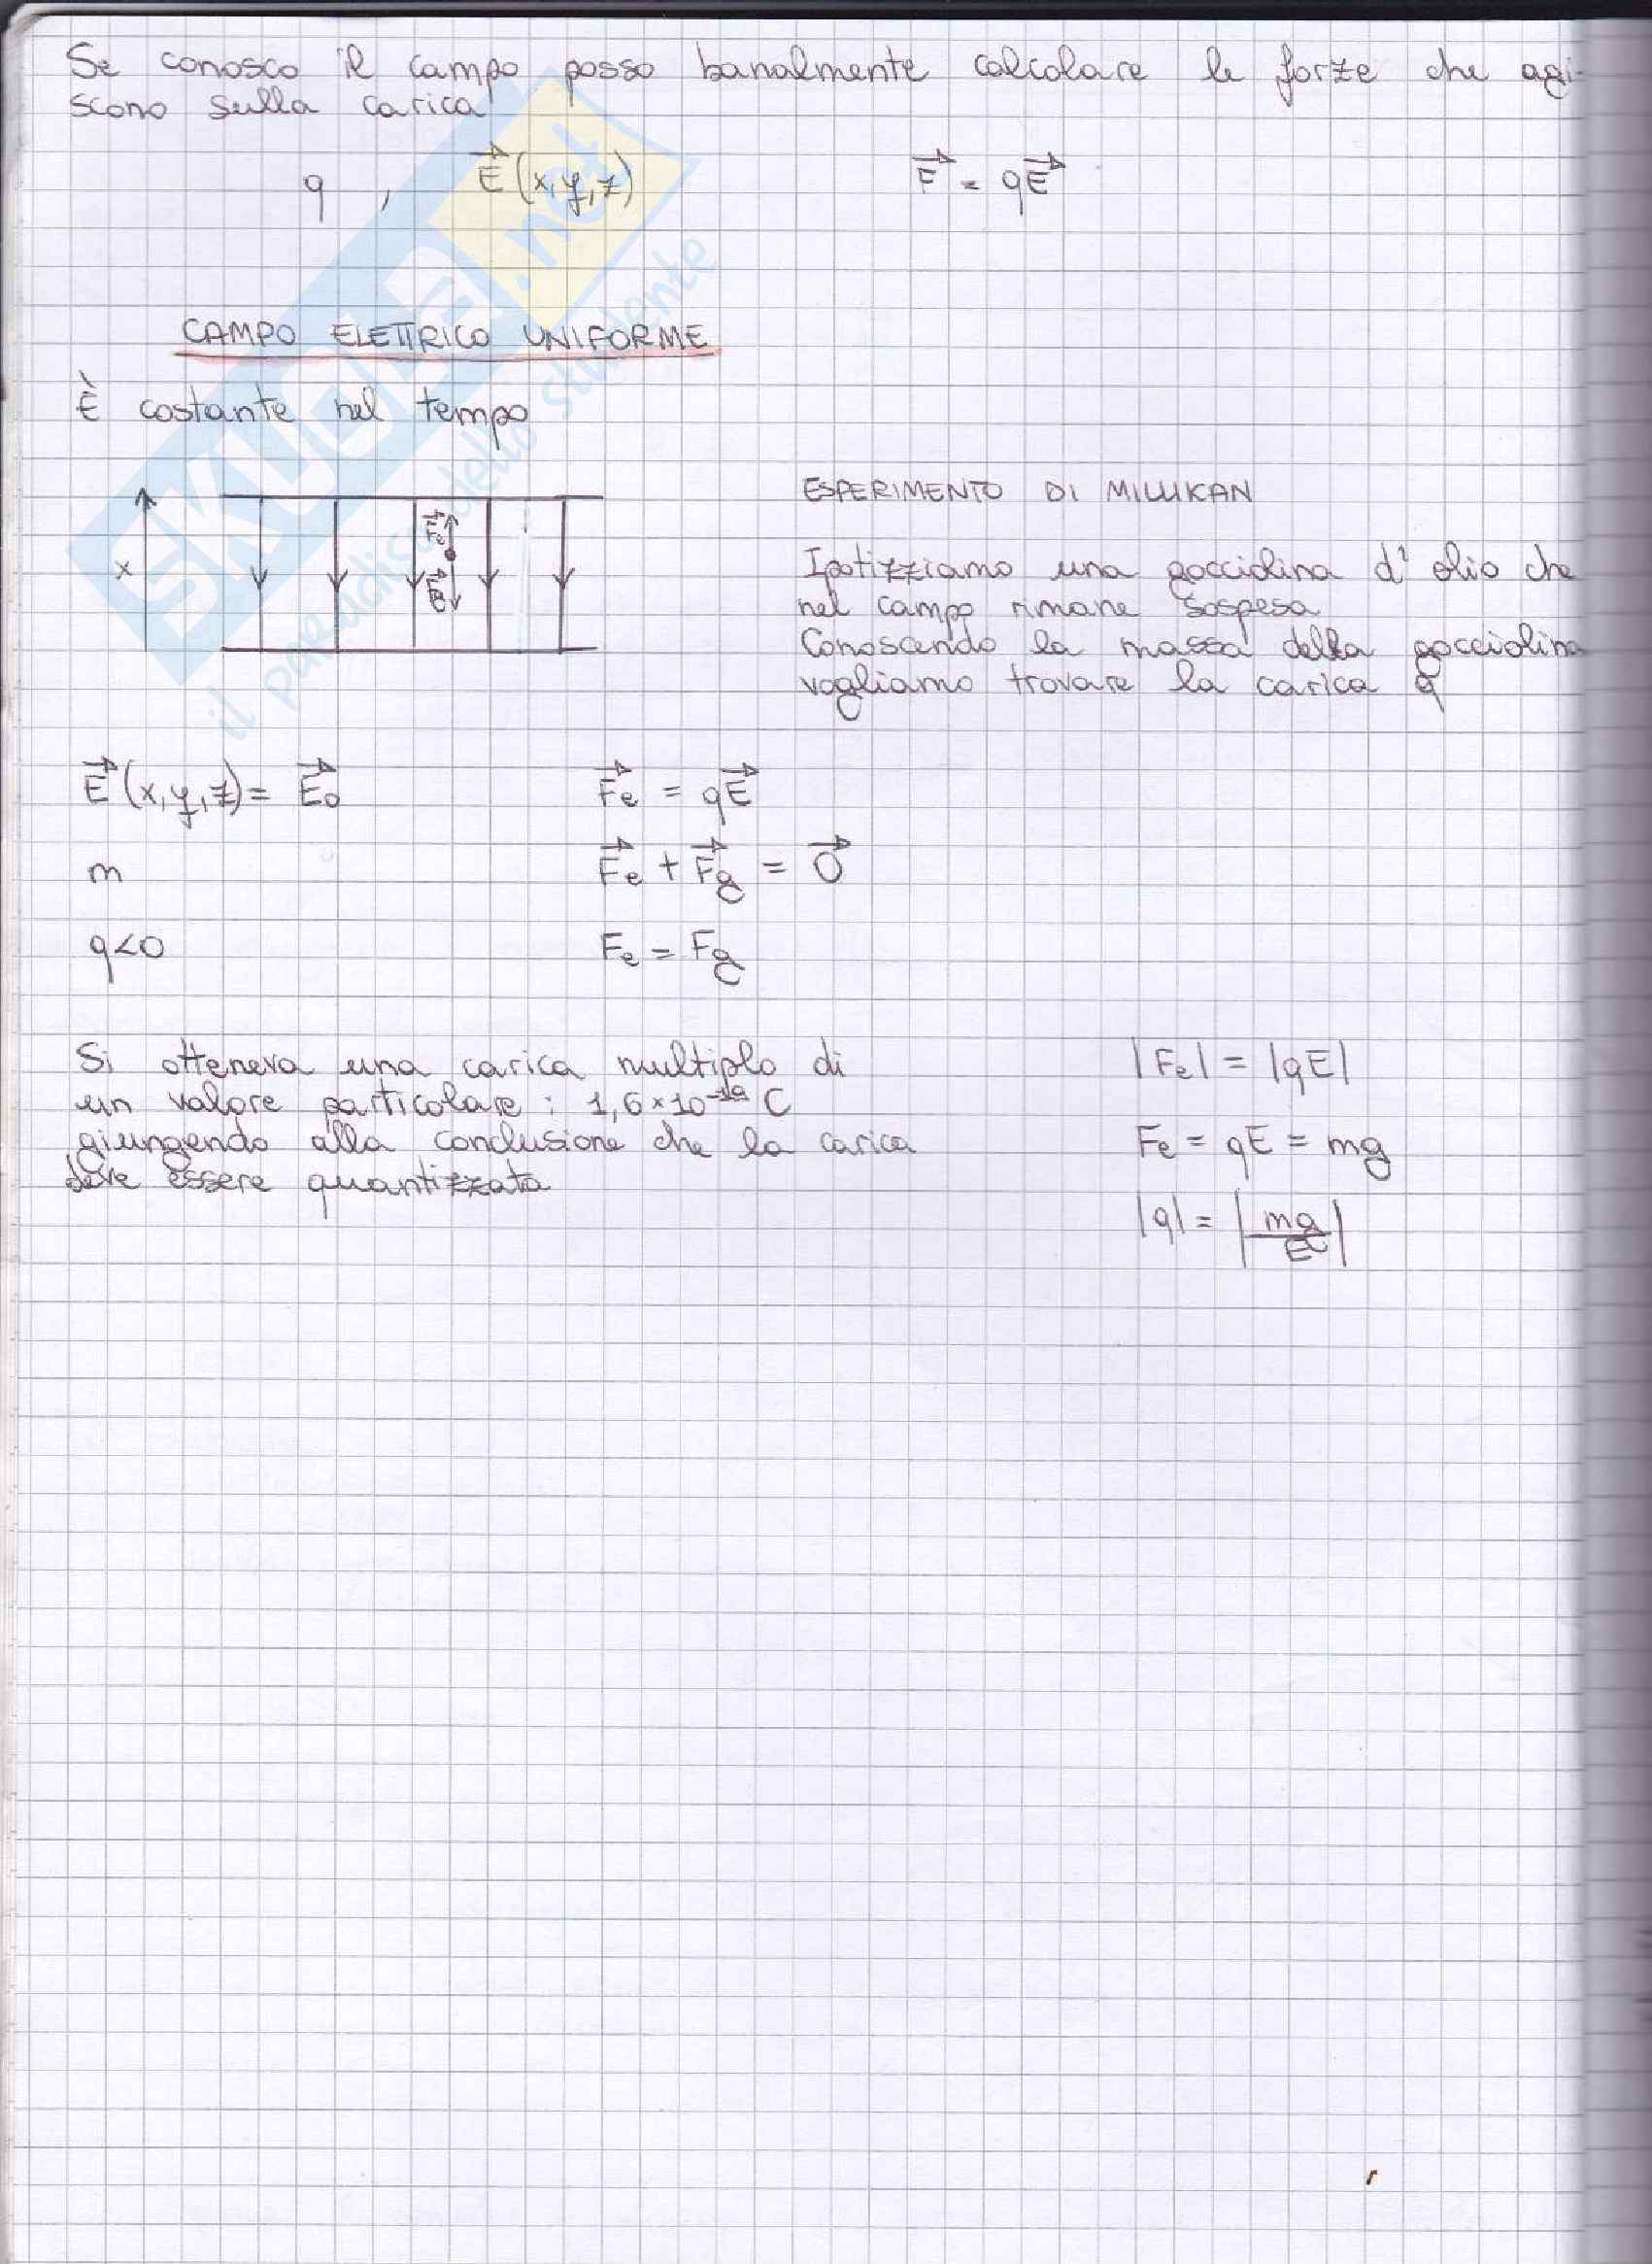 Se conosco il campo posso banalmente calcolare le forze che agi-
scono sulla carica
q , E⃗(x,y,z) F⃗ = qE⃗
CAMPO ELETTRICO UNIFORME
È costante nel tempo
x
F⃗e
F⃗g
ESPERIMENTO DI MILLIKAN
Ipotizziamo una gocciolina d'olio che
nel campo rimane sospesa
Conoscendo la massa della gocciolina
vogliamo trovare la carica q
E⃗(x,y,z) = E⃗0 F⃗e = qE⃗
m F⃗e + F⃗g = 0⃗
q<0 Fe = Fg
Si otteneva una carica multiplo di
un valore particolare : 1,6×10⁻¹⁹ C
giungendo alla conclusione che la carica
deve essere quantizzata
|Fe| = |qE|
Fe = qE = mg
|q| = |mg/E|
SKUOLA.net
il paradiso dello studente